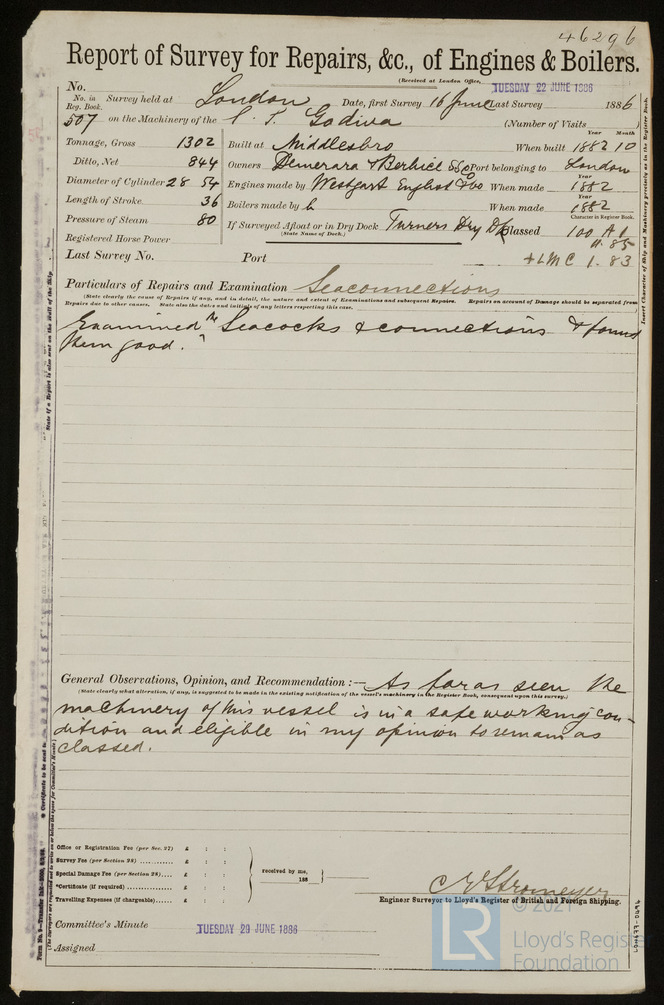 46296
Report of Survey for Repairs, &c., of Engines & Boilers.
(Received at London Office, TUESDAY 22 JUNE 1886
No.
No. in Reg. Book. Survey held at London Date, first Survey 16 June Last Survey 1886
507 on the Machinery of the S. S. Godiva (Number of Visits
Tonnage, Gross 1302 Built at Middlesbro When built 1882 10
Year Month
Ditto, Net 844 Owners Demerara & Berbice SS Co Port belonging to London
Diameter of Cylinder 28 54 Engines made by Westgart English & Co When made 1882
Year
Length of Stroke 36 Boilers made by When made 1882
Year
Pressure of Steam 80 If Surveyed Afloat or in Dry Dock Turners Dry Dk Classed 100 A1
(State Name of Dock.) Character in Register Book.
Registered Horse Power 11.85
Last Survey No. Port +LMC 1.83
Particulars of Repairs and Examination Seaconnections
(State clearly the cause of Repairs if any, and in detail, the nature and extent of Examinations and subsequent Repairs. Repairs on account of Damage should be separated from
Repairs due to other causes. State also the dates and initials of any letters respecting this case.
Examined the Seacocks & connections & found
them good.
General Observations, Opinion, and Recommendation :— As far as seen the
(State clearly what alteration, if any, is suggested to be made in the existing notification of the vessel's machinery in the Register Book, consequent upon this survey.)
machinery of this vessel is in a safe working con-
dition and eligible in my opinion to remain as
classed.
Office or Registration Fee (per Sec. 27) £ : :
Survey Fee (per Section 28) ............ £ : :
Special Damage Fee (per Section 28).... £ : :
*Certificate (if required) ................ £ : :
Travelling Expenses (if chargeable)...... £ : :
received by me,
188
C E Stromeyer
Engineer Surveyor to Lloyd's Register of British and Foreign Shipping.
Committee's Minute TUESDAY 29 JUNE 1886
Assigned
© 2021
LR
Lloyd's Register
Foundation
Insert Character of Ship and Machinery precisely as in the Register Book.
State if a Report is also sent on the Hull of the Ship.
LON677-0496